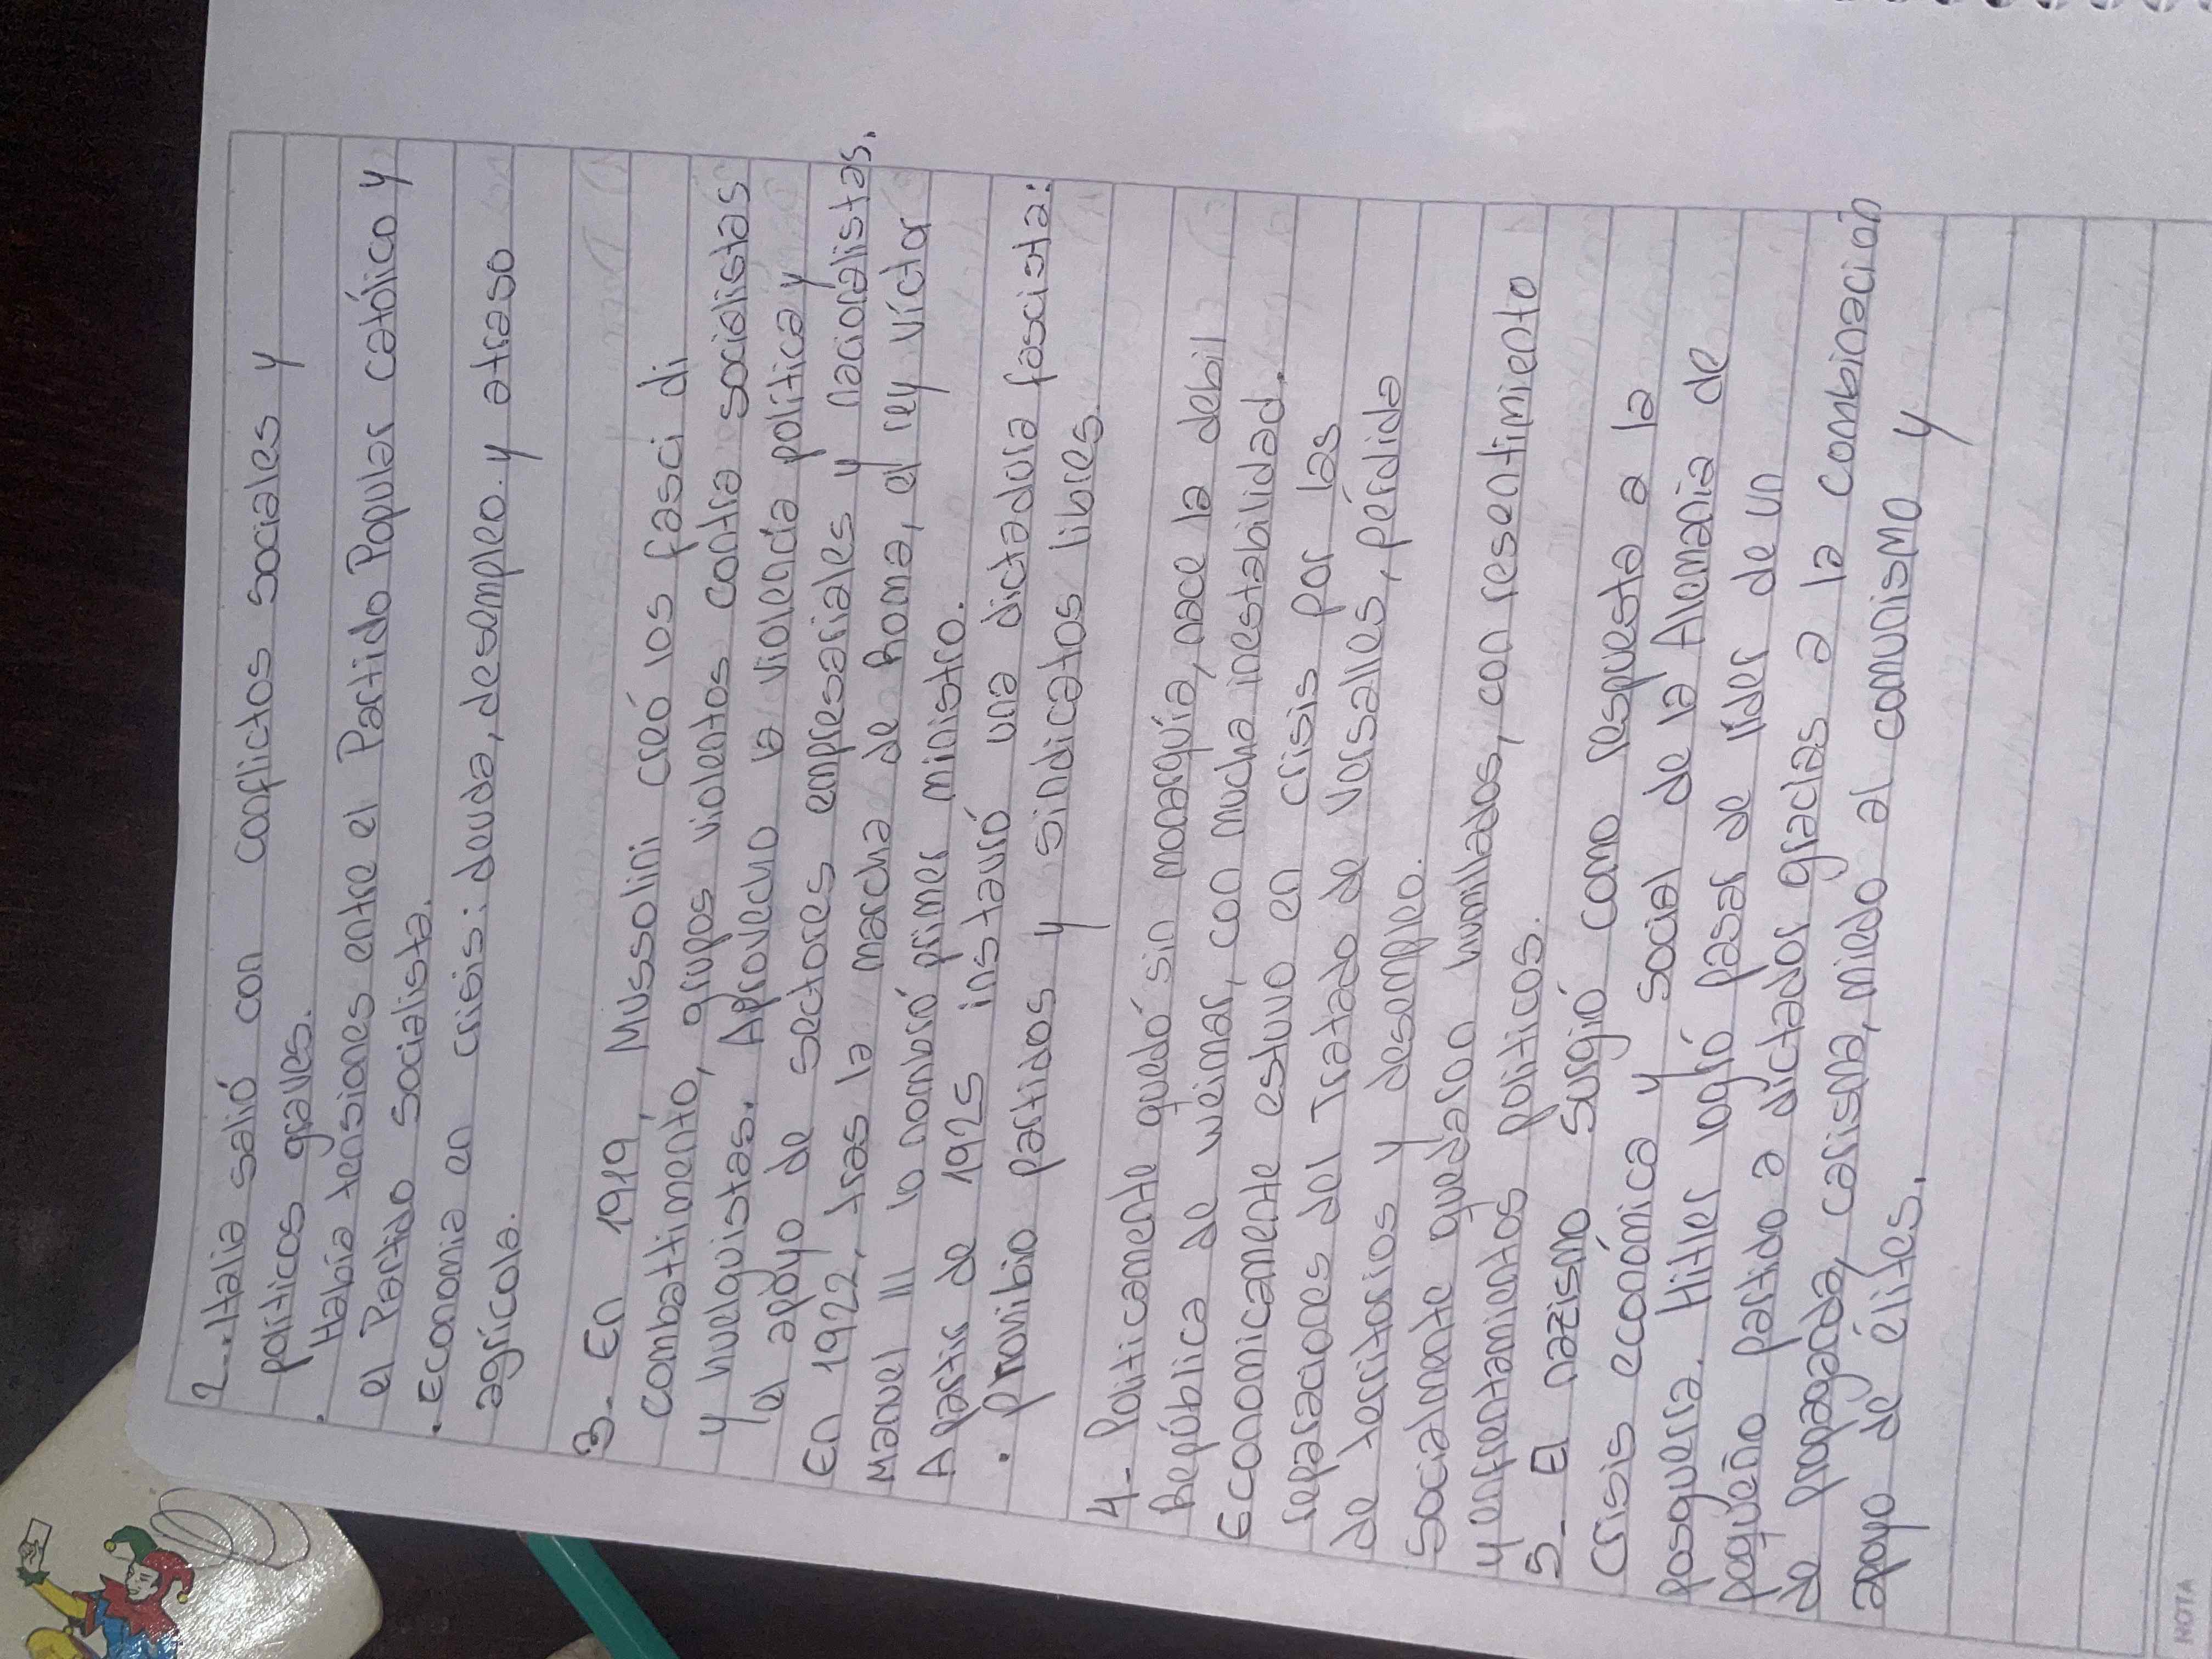 2-. Italia salió con conflictos sociales y
politicos graves.
. Había tensiones entre el Partido Popular católico y
el Partido socialista.
. Economia en crisis: deuda, desempleo. y atraso
agrícola.
3- En 1919, Mussolini creó los fasci di
combattimento, grupos violentos contra socialistas
y huelguistas. Aprovecho la violencia politica y
el apoyo de sectores empresariales y nacionalistas.
En 1922, tras la marcha de Roma, el rey Víctor
Manuel III lo nombró primer ministro.
A partir de 1925 instauró una dictadura fascista:
. Prohibio partidos y sindicatos libres.
4- Politicamente quedó sin monarquía, nace la debil
República de Weimar, con mucha inestabilidad.
Economicamente estuvo en crisis por las
reparaciones del Tratado de Versalles, pérdida
de territorios y desempleo.
Socialmente quedaron humillados, con resentimiento
y enfrentamientos politicos.
5- El nazismo surgió como respuesta a la
crisis económica y social de la Alemania de
posguerra. Hitler logró pasar de líder de un
pequeño partido a dictador gracias a la combinación
de propaganda, carisma, miedo al comunismo y
apoyo de élites.
NOTA